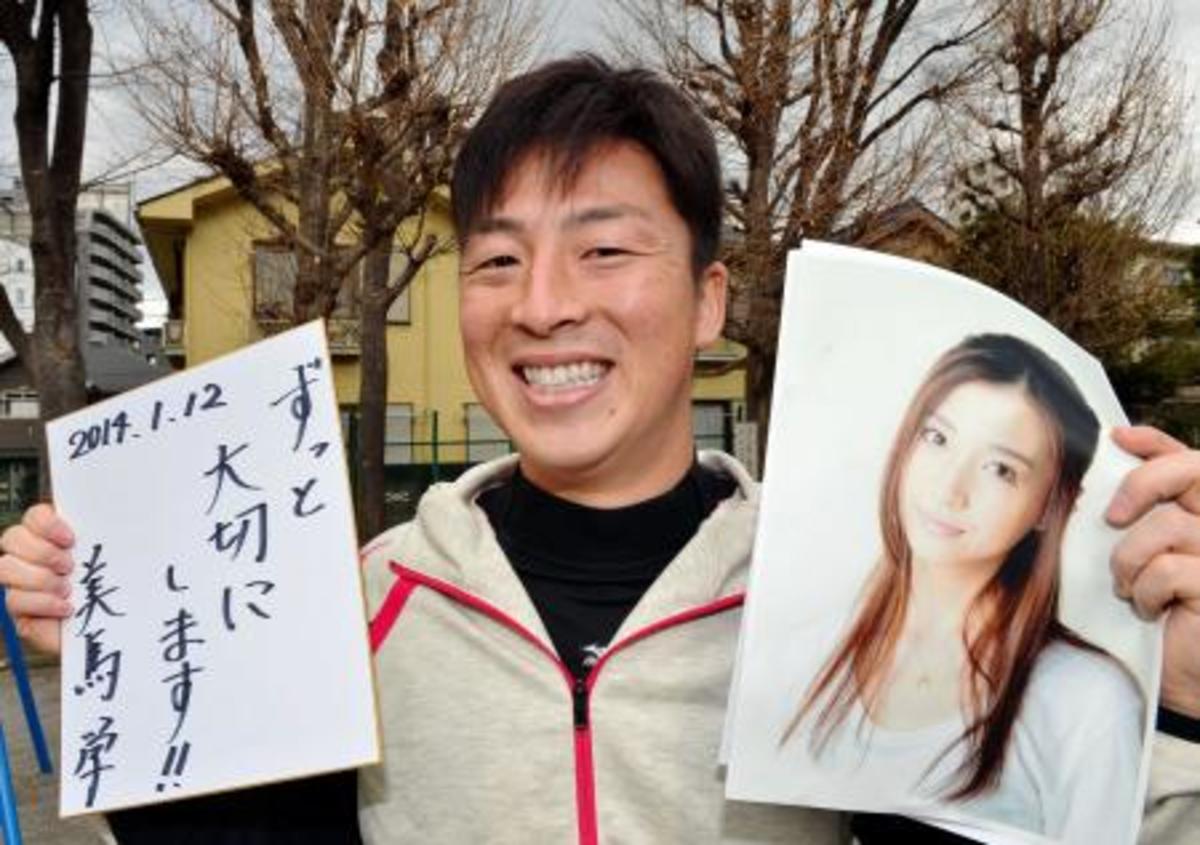 2014.1.12
ずっと
大切に
します!!
美馬学